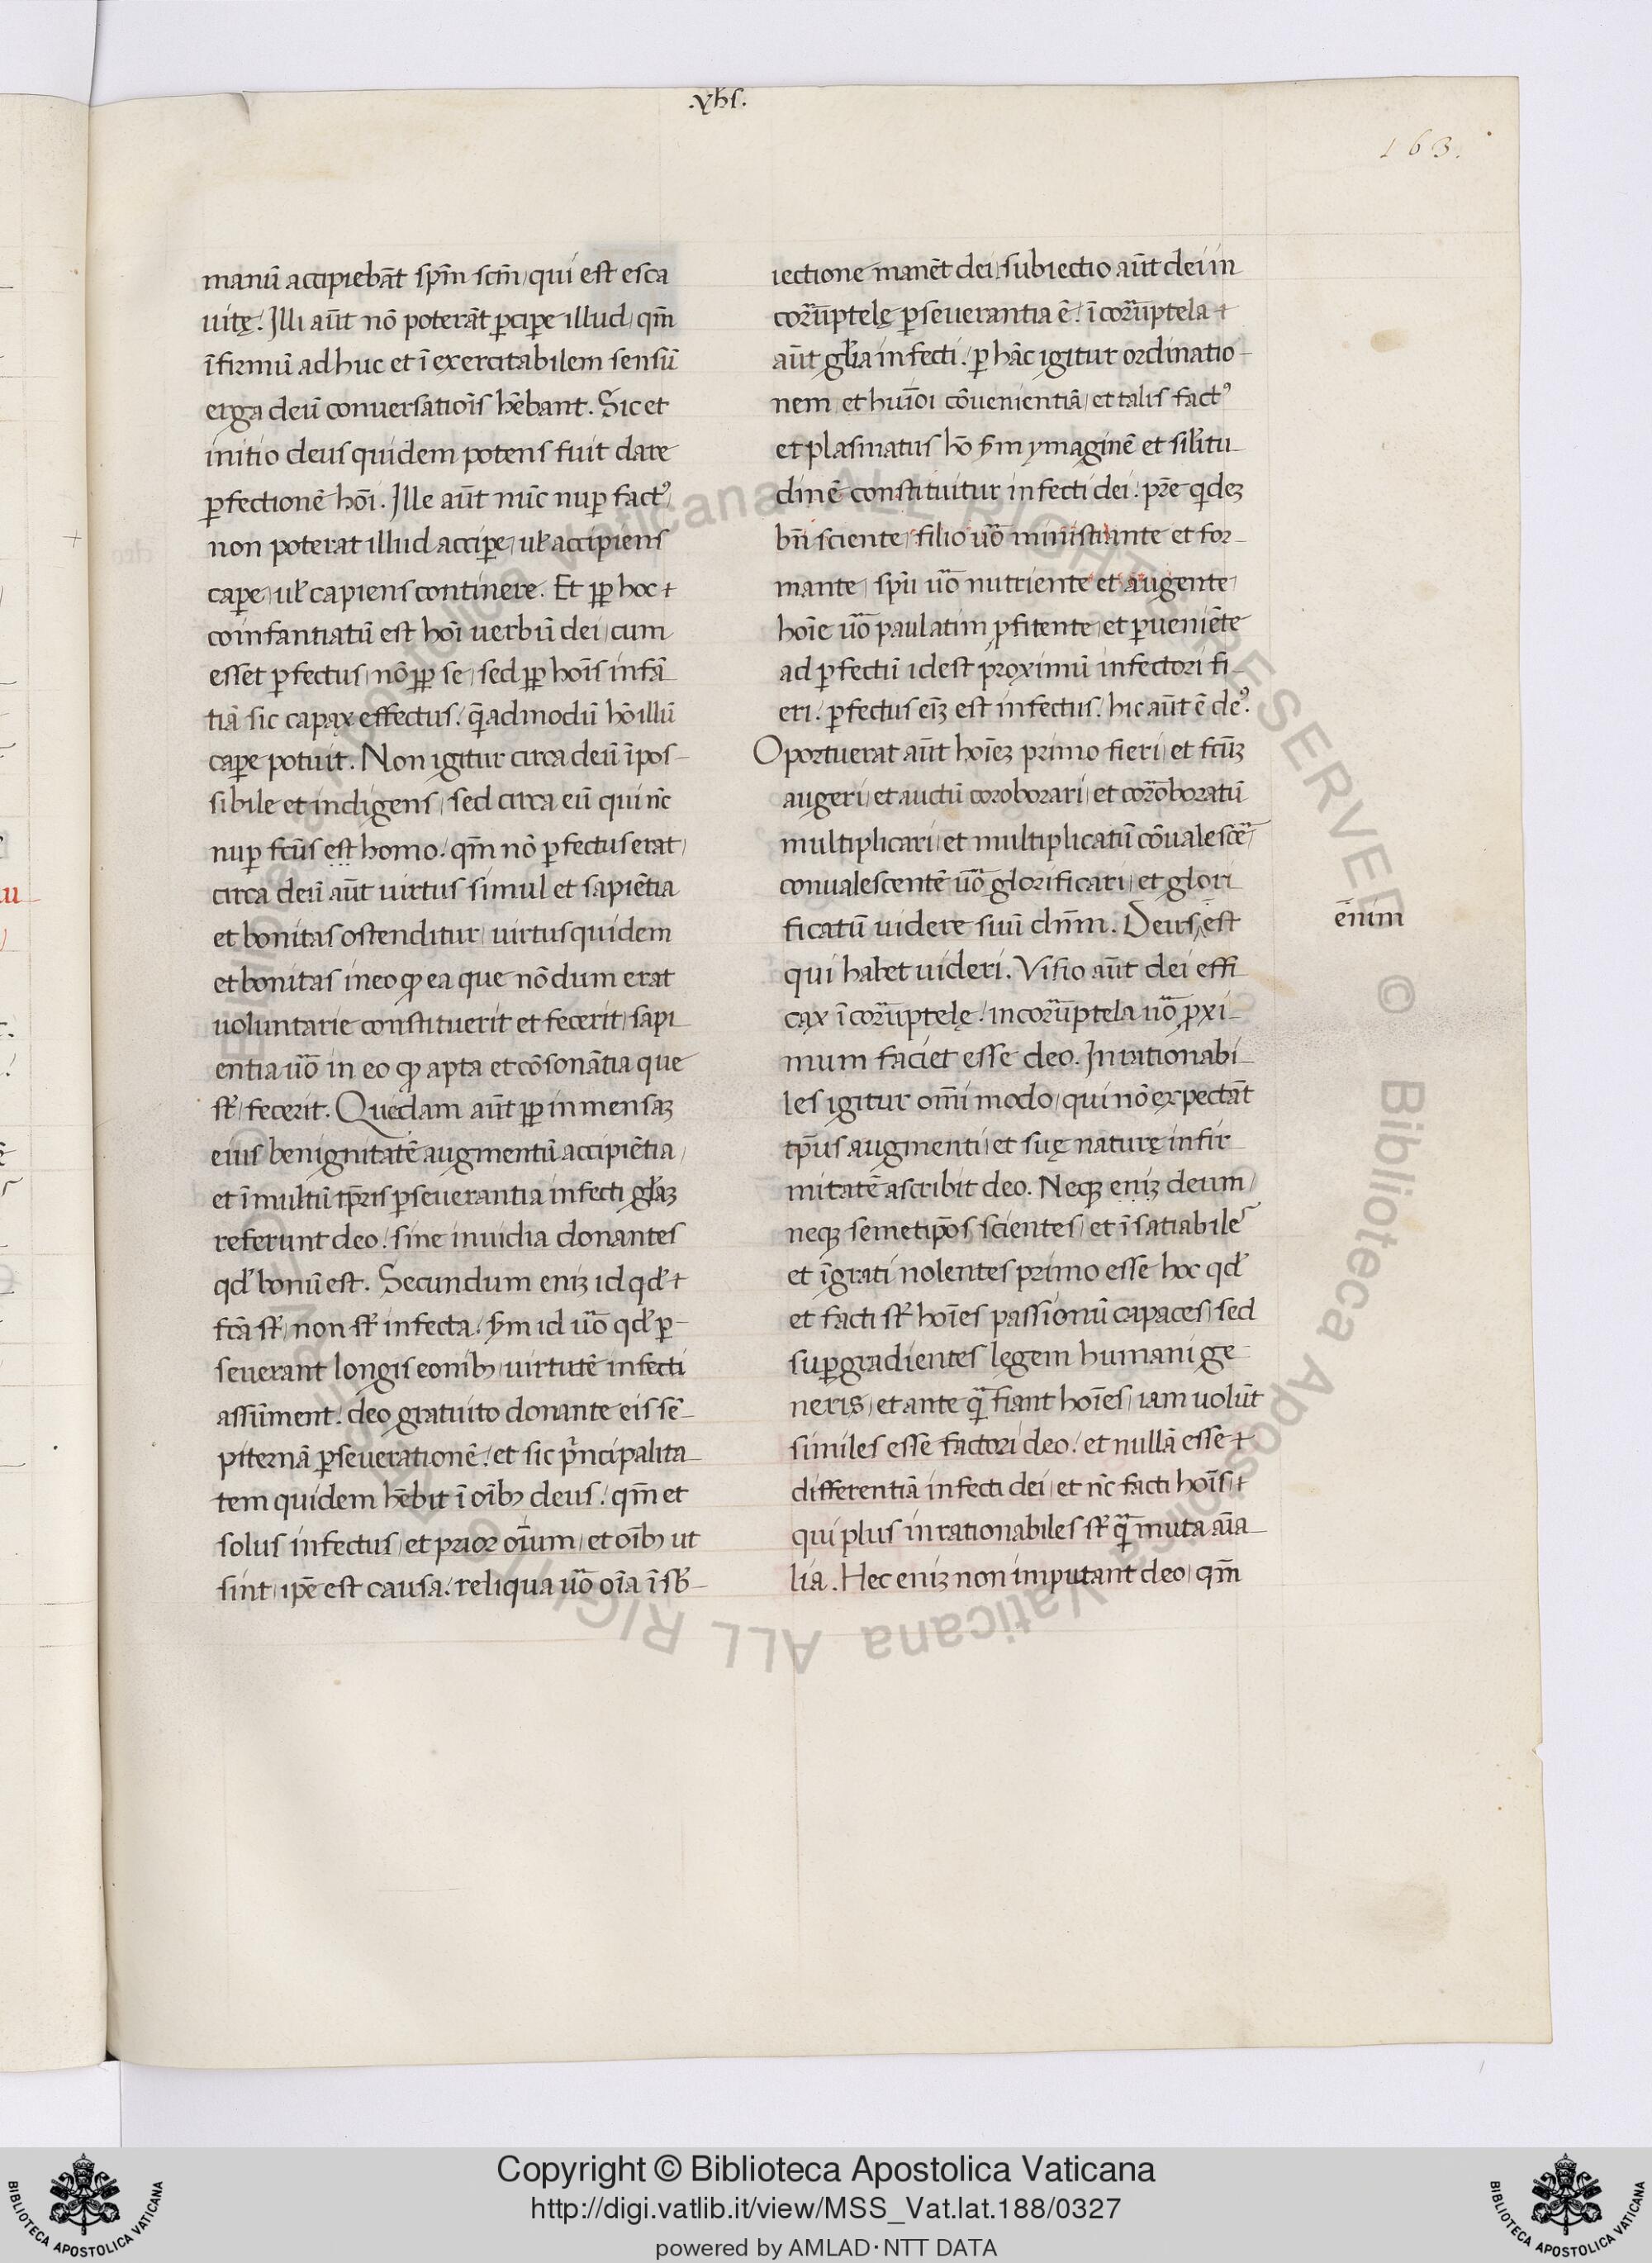 .yhs.
163.
manū accipiebāt sp̄m sc̄m, qui est esca
uitę. Illi aūt nō poterāt ꝑcipe illud, qm̄
īfirmū adhuc et īexercitabilem sensū
erga deū conuersatiōis hēbant. Sic et
initio deus quidem potens fuit dare
ꝑfectionē hōi. Ille aūt nūc nuꝑ factꝰ,
non poterat illud accipe, uł accipiens
cape, uł capiens continere. Et ꝓp hoc +
coinfantiatū est hōi uerbū dei, cum
esset ꝑfectus, nō ꝓp se, sed ꝓp hoīs infā_
tiā sic capax effectus. q̄admodū hō illū
cape potuit. Non igitur circa deū īpos-
sibile et indigens, sed circa eū qui nc̄
nuꝑ fcūs est homo. qm̄ nō ꝑfectus erat,
circa deū aūt uirtus simul et sapiētia
et bonitas ostenditur, uirtus quidem
et bonitas in eo ꝙ ea que nō dum erat
uoluntarie constituerit et fecerit, sapi_
entia uō in eo ꝙ apta et cōsonātia que
st̄, fecerit. Quedam aūt ꝓp inmensaꝫ
eius benignitatē augmentū accipiētia,
et ī multū tp̄ris ꝑseuerantia infecti głaꝫ
referunt deo. sine inuidia donantes
qd̓ bonū est. Secundum eniꝫ id qd̓ +
fcā st̄, non st̄ infecta. s̄m id uō qd̓ ꝑ-
seuerant longis eonibꝫ, uirtutē infecti
assūment. deo gratuito donante eis sē_
piternā ꝑseuerationē. et sic pͥncipalita_
tem quidem hēbit ī oībꝫ deus. qm̄ et
solus infectus, et prior oīum, et oībꝫ ut
sint, ipē est causa. reliqua uō oīa ī sb̓-
iectione manēt dei, subiectio aūt dei in
corr̄uptelę ꝑseuerantia ē. ī corr̄uptela +
aūt głia infecti. ꝑ hāc igitur ordinatio-
nem, et huīoi cōuenientiā, et talis factꝰ
et plasmatus hō s̄m ymaginē et sił̓itu_
dinē constituitur infecti dei. pr̄e qͥdeꝫ
bn̄ sciente, filio uō ministrante et for_
mante, spū uō nutriente et augente,
hoīe uō paulatim ꝓfitente, et ꝑueniēte
ad ꝑfectū idest proximū infectori fi_
eri. ꝑfectus eīꝫ est infectus. hic aūt ē deꝰ.
Oportuerat aūt hoīeꝫ primo fieri, et fcūꝫ
augeri, et auctū coroborari, et corr̄oboratū
multiplicari, et multiplicatū cōualescē̄,
conualescentē uō glorificari, et glori_
ficatū uidere suū dn̄m. Deus ‸ est
ēnim
qui habet uideri. Visio aūt dei effi_
cax ī corr̄uptelę. incorr̄uptela uō ꝓxi_
mum faciet esse deo. Inrationabi_
les igitur omī modo, qui nō expectāt
tp̄us augmenti, et suę naturę infir_
mitatē ascribit deo. Neqꝫ eniꝫ deum,
neqꝫ semetip̄os scientes, et īsatiabiles
et īgrati nolentes primo esse hoc qd̓
et facti st̄ hoīes passionū capaces, sed
suꝑgradientes legem humani ge_
neris, et ante q̄ fiant hoīes, iam uolūt
similes esse factori deo. et nullā esse +
differentiā infecti dei, et nc̄ facti hoīs, +
qui plus inrationabiles st̄ q̄ muta aīa_
lia. Hec eniꝫ non imputant deo, qm̄
Copyright © Biblioteca Apostolica Vaticana
http://digi.vatlib.it/view/MSS_Vat.lat.188/0327
powered by AMLAD·NTT DATA